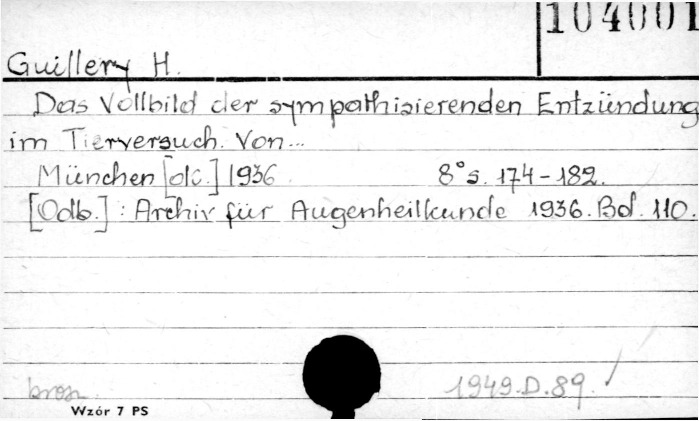 104001
Guillery H.
Das Vollbild der sympathisierenden Entzündung
im Tierversuch. Von...
München [dr.] 1936. 8° s. 174-182.
[Odb.]: Archiv für Augenheilkunde 1936. Bd. 110.
brosz.
1949.D.89.
Wzór 7 PS